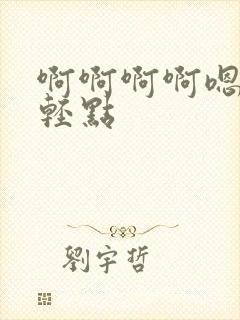 啊啊啊啊嗯
輕點
劉宇哲